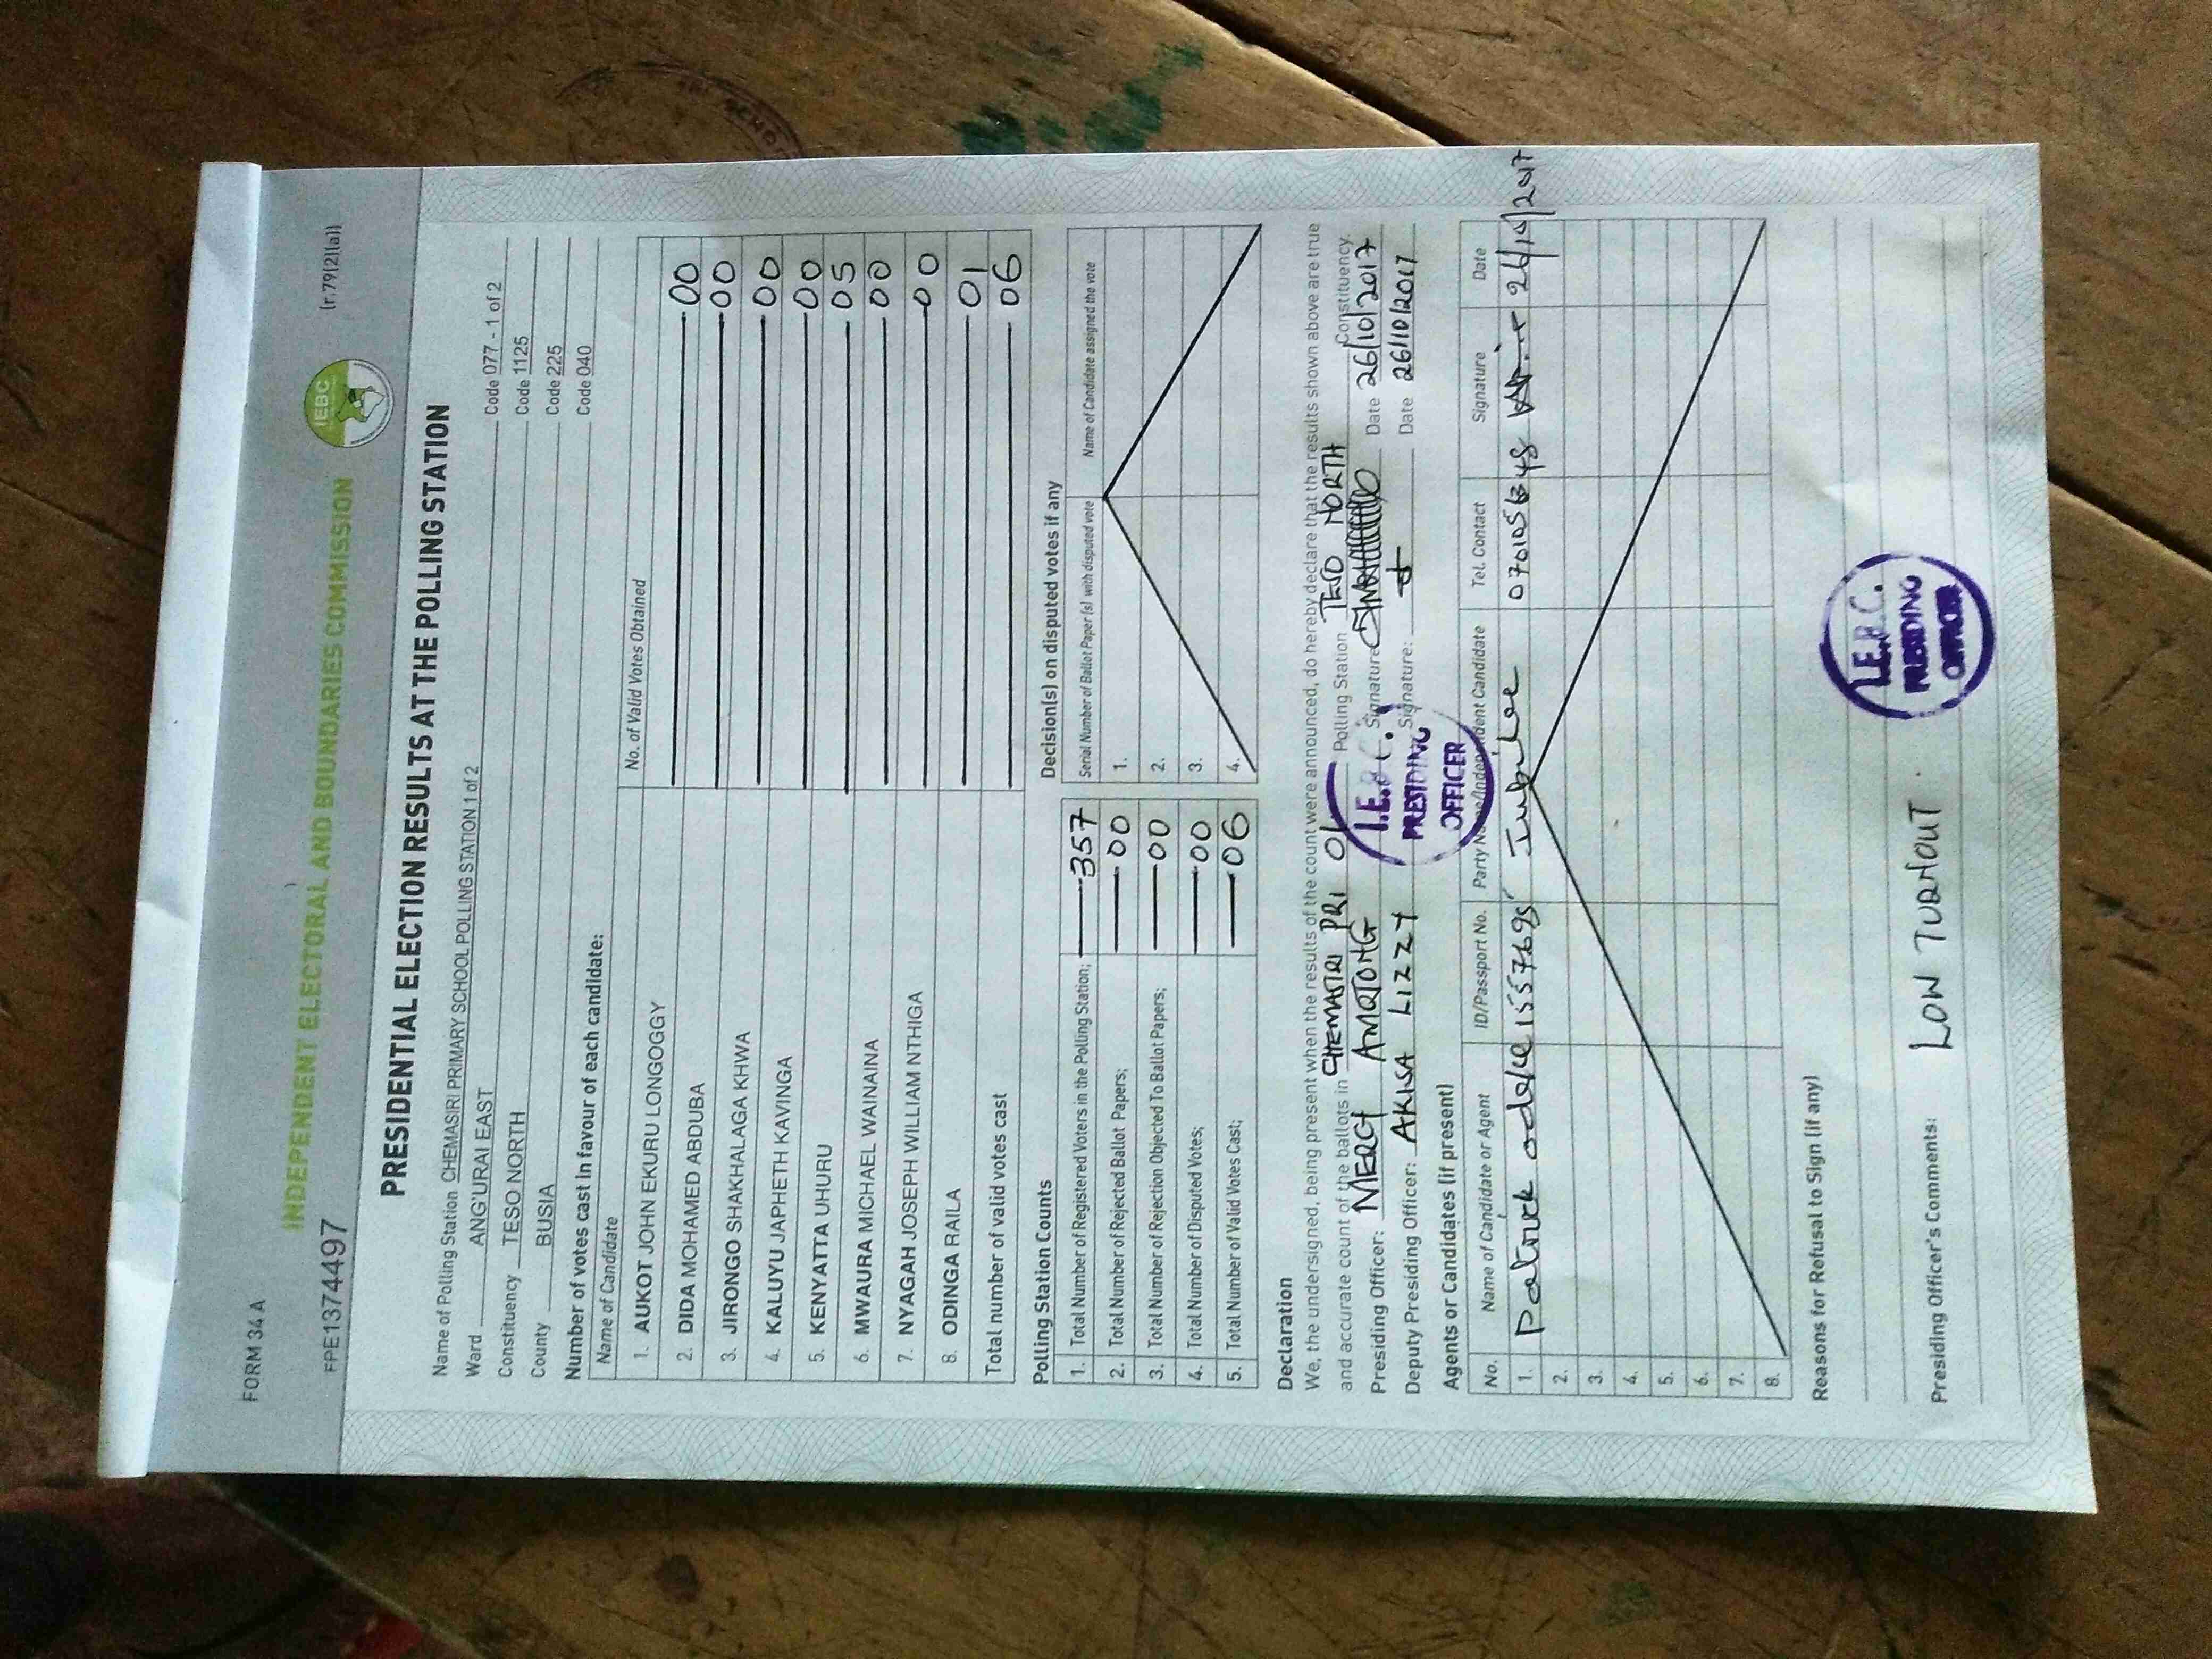 FORM 34 A
(r.79(2)(a))
FPE1374497
INDEPENDENT ELECTORAL AND BOUNDARIES COMMISSION
IEBC
PRESIDENTIAL ELECTION RESULTS AT THE POLLING STATION
Name of Polling Station CHEMASIRI PRIMARY SCHOOL POLLING STATION 1 of 2 Code 077 - 1 of 2
Ward ANG'URAI EAST Code 1125
Constituency TESO NORTH Code 225
County BUSIA Code 040
Number of votes cast in favour of each candidate:
Name of Candidate No. of Valid Votes Obtained
1. AUKOT JOHN EKURU LONGOGGY 00
2. DIDA MOHAMED ABDUBA 00
3. JIRONGO SHAKHALAGA KHWA 00
4. KALUYU JAPHETH KAVINGA 00
5. KENYATTA UHURU 05
6. MWAURA MICHAEL WAINAINA 00
7. NYAGAH JOSEPH WILLIAM NTHIGA 00
8. ODINGA RAILA 01
Total number of valid votes cast 06
Polling Station Counts
1. Total Number of Registered Voters in the Polling Station; 357
2. Total Number of Rejected Ballot Papers; 00
3. Total Number of Rejection Objected To Ballot Papers; 00
4. Total Number of Disputed Votes; 00
5. Total Number of Valid Votes Cast; 06
Decision(s) on disputed votes if any
Serial Number of Ballot Paper(s) with disputed vote Name of Candidate assigned the vote
1.
2.
3.
4.
Declaration
We, the undersigned, being present when the results of the count were announced, do hereby declare that the results shown above are true
and accurate count of the ballots in CHEMASIRI PRI 01 Polling Station TESO NORTH Constituency.
Presiding Officer: MERCY AMOTONG Signature: Date 26/10/2017
Deputy Presiding Officer: AKISA LIZZY Signature: Date 26/10/2017
I.E.B.C. PRESIDING OFFICER
Agents or Candidates (if present)
No. Name of Candidate or Agent ID/Passport No. Party Name/Independent Candidate Tel. Contact Signature Date
1. Patrick 15576985 Jubilee 26/10/2017
2.
3.
4.
5.
6.
7.
8.
Reasons for Refusal to Sign (if any)
Presiding Officer's Comments: LOW TURNOUT.
I.E.B.C. PRESIDING OFFICER